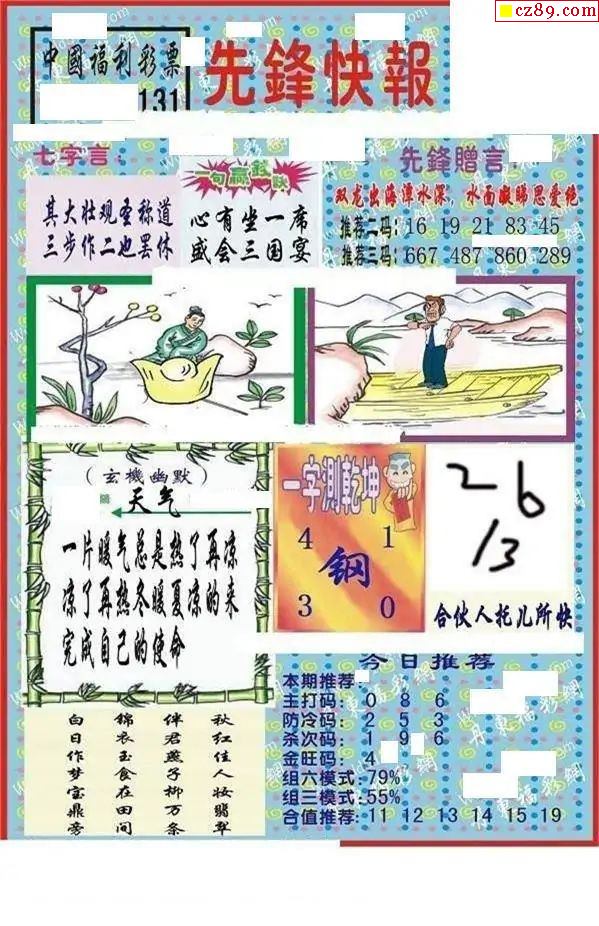 cz89.com
中國福利彩票
131
先鋒快報
七字言：
其大壮观圣称道
三步作二也罢休
一句赢錢訣
心有坐一席
盛会三国宴
先鋒贈言：
双龙出海潭水深，水面凝睇思爱绝
推荐二码：16 19 21 83 45
推荐三码：667 487 860 289
（玄機幽默）
天气
一片暖气总是热了再凉
凉了再热冬暖夏凉的来
完成自己的使命
一字测乾坤
4 1
鋼
3 0
26
13
合伙人托儿所快
今日推荐
本期推荐：
主打码：0 8 6
防冷码：2 5 3
杀次码：1 9 6
金旺码：4
组六模式：79%
组三模式：55%
合值推荐：11 12 13 14 15 19
秋红佳人妆翡翠
伴君燕子柳万条
锦衣玉食在田间
白日作梦宝鼎旁
丹東福彩網